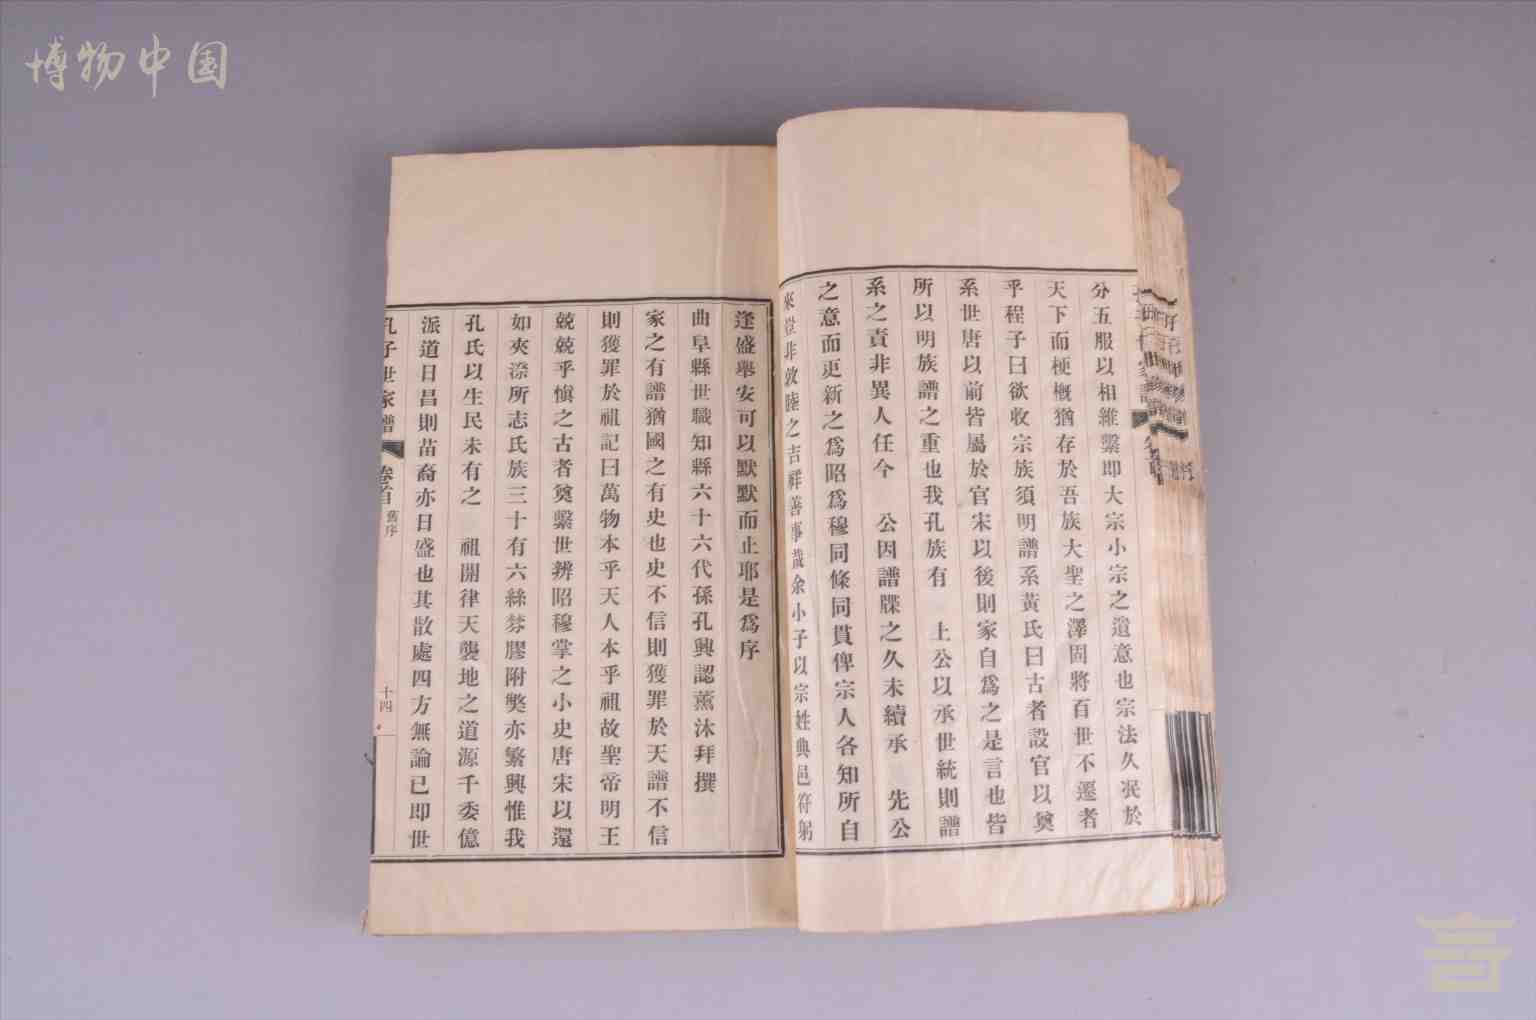 博物中国
分五服以相維繫即大宗小宗之遺意也宗法久泯於
天下而梗概猶存於吾族大聖之澤固將百世不遷者
乎程子曰欲收宗族須明譜系黃氏曰古者設官以奠
系世唐以前皆屬於官宋以後則家自為之是言也皆
所以明族譜之重也我孔族有 上公以承世統則譜
系之責非異人任今 公因譜牒之久未續承 先公
之意而更新之為昭為穆同條同貫俾宗人各知所自
來豈非敦睦之吉祥善事哉余小子以宗姓典邑符躬
逢盛舉安可以默默而止耶是為序
曲阜縣世職知縣六十六代孫孔興認薰沐拜撰
家之有譜猶國之有史也史不信則獲罪於天譜不信
則獲罪於祖記曰萬物本乎天人本乎祖故聖帝明王
兢兢乎慎之古者奠繫世辨昭穆掌之小史唐宋以還
如夾漈所志氏族三十有六絲棼膠附獘亦繁興惟我
孔氏以生民未有之 祖開律天襲地之道源千委億
派道日昌則苗裔亦日盛也其散處四方無論已即世
孔子世家譜 卷首 舊序 十四